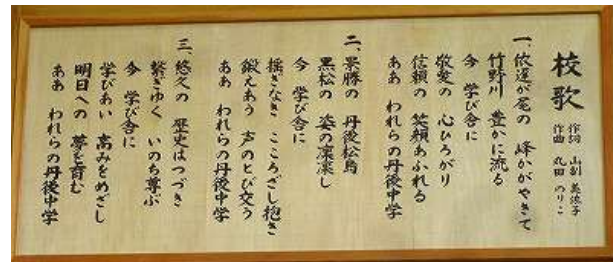 校歌
作詞 山副 美流子
作曲 丸田 のりこ
一、依遅が尾の 峰かがやきて
竹野川 豊かに流る
今 学び舎に
敬愛の 心ひろがり
信頼の 笑顔あふれる
ああ われらの丹後中学
二、景勝の 丹後松島
黒松の 姿の凛凛し
今 学び舎に
揺ぎなき こころざし抱き
鍛えあう 声のとび交う
ああ われらの丹後中学
三、悠久の 歴史はつづき
繋ぎゆく いのち尊ぶ
今 学び舎に
学びあい 高みをめざし
明日への 夢を育む
ああ われらの丹後中学